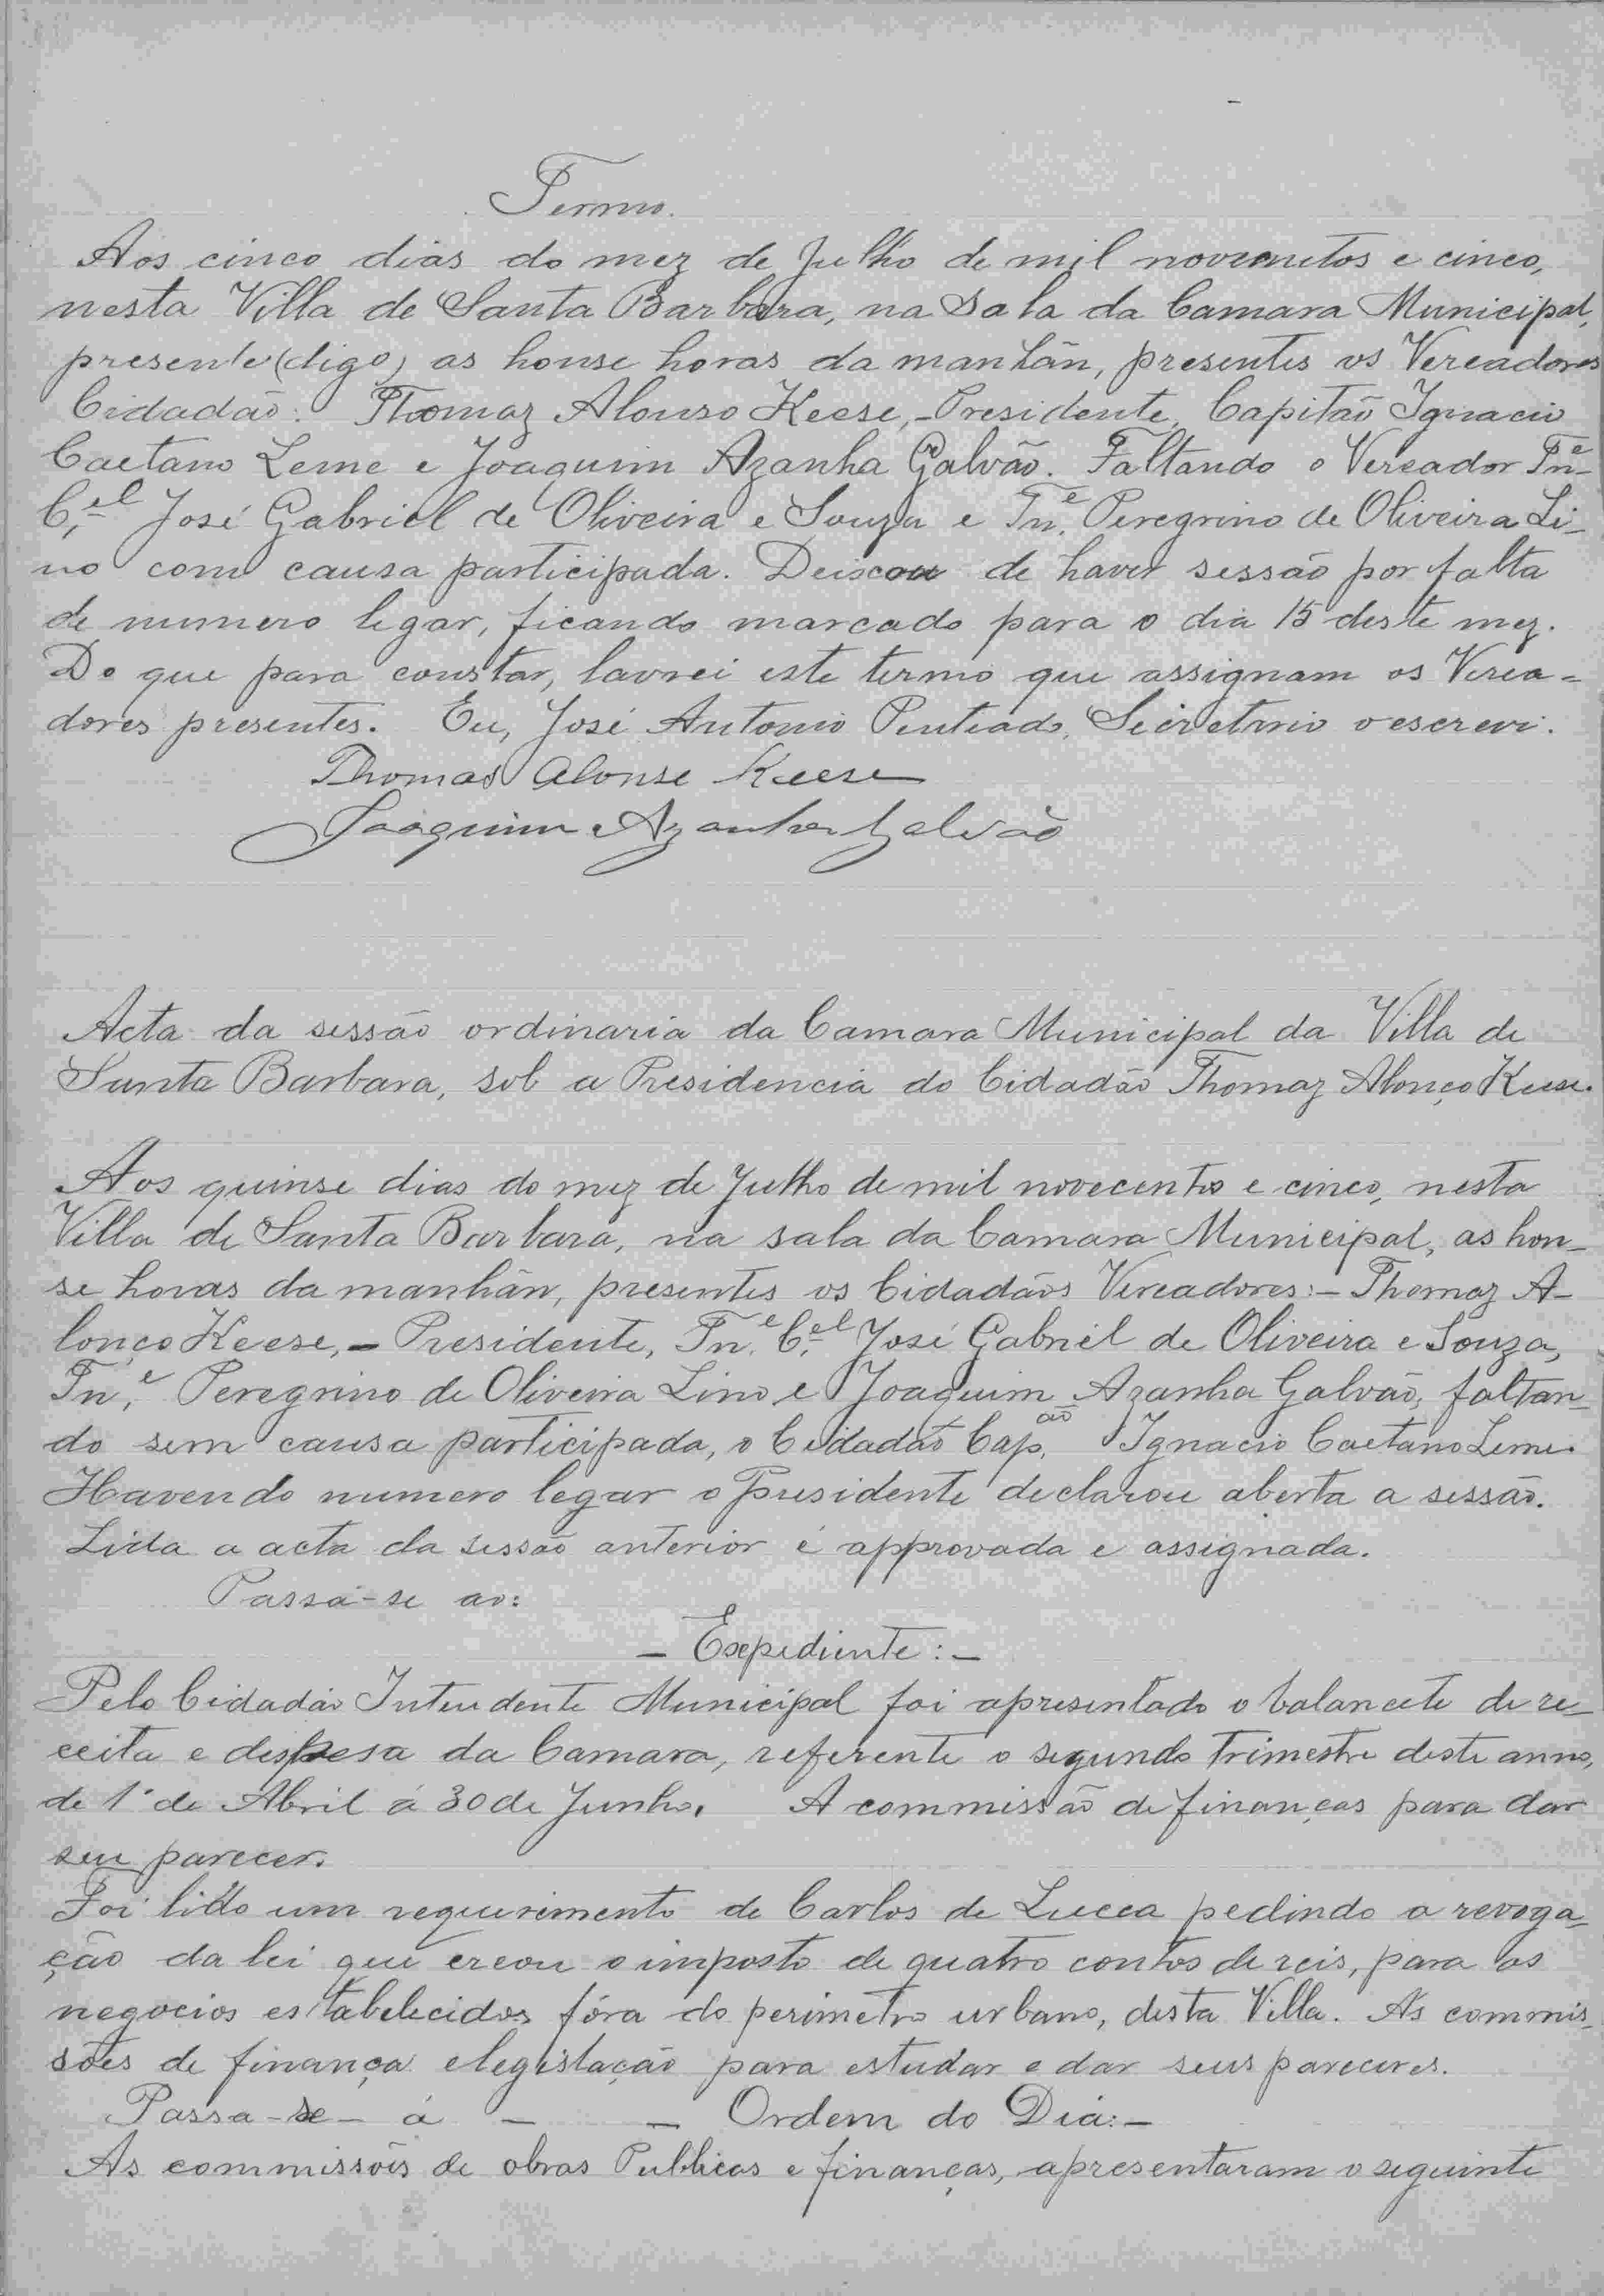 Termo.
Aos cinco dias do mez de Julho de mil novecentos e cinco,
nesta Villa de Santa Barbara, na Sala da Camara Municipal,
presente (digo) as honse horas da manhân, presentes os Vereadores
Cidadão: Thomaz Alonso Keese,-Presidente, Capitão Ignacio
Caetano Leme e Joaquim Azanha Galvão. Faltando o Vereador Tn.e
C.el José Gabriel de Oliveira e Souza e Tn.e Peregrino de Oliveira Li-
no com causa participada. Deiscou de haver sessão por falta
de numero legar, ficando marcado para o dia 15 deste mez.
Do que para constar, lavrei este termo que assignam os Verea-
dores presentes. Eu, José Antonio Penteado, Secretario o escrevi.
Thomas Alonse Keese
Joaquim Azanha Galvão
Acta da sessão ordinaria da Camara Municipal da Villa de
Santa Barbara, sob a Presidencia do Cidadão Thomaz Alonço Keese.
Aos quinse dias do mez de Julho de mil novecentos e cinco, nesta
Villa de Santa Barbara, na sala da Camara Municipal, as hon-
se horas da manhân, presentes os Cidadãos Vereadores:- Thomaz A-
lonço Keese,- Presidente, Tn.e C.el José Gabriel de Oliveira e Souza,
Tn.e Peregrino de Oliveira Lino e Joaquim Azanha Galvão, faltan-
do sem causa participada, o Cidadão Cap.ão Ignacio Caetano Leme.
Havendo numero legar o Presidente declarou aberta a sessão.
Lida a acta da sessão anterior é approvada e assignada.
Passa-se ao:
- Expediente:-
Pelo Cidadão Intendente Municipal foi apresentado o balancete de re-
ceita e despesa da Camara, referente o segundo Trimestre deste anno,
de 1º de Abril á 30 de Junho. A commissão de finanças para dar
seu parecer.
Foi lido um requerimento de Carlos de Lucca pedindo a revoga-
ção da lei que creou o imposto de quatro contos de reis, para os
negocios estabelecidos fóra do perimetro urbano, desta Villa. As commis-
sões de finança e legislação para estudar e dar seus pareceres.
Passa-se- á - - Ordem do Dia:-
As commissões de obras Publicas e finanças, apresentaram o seguinte